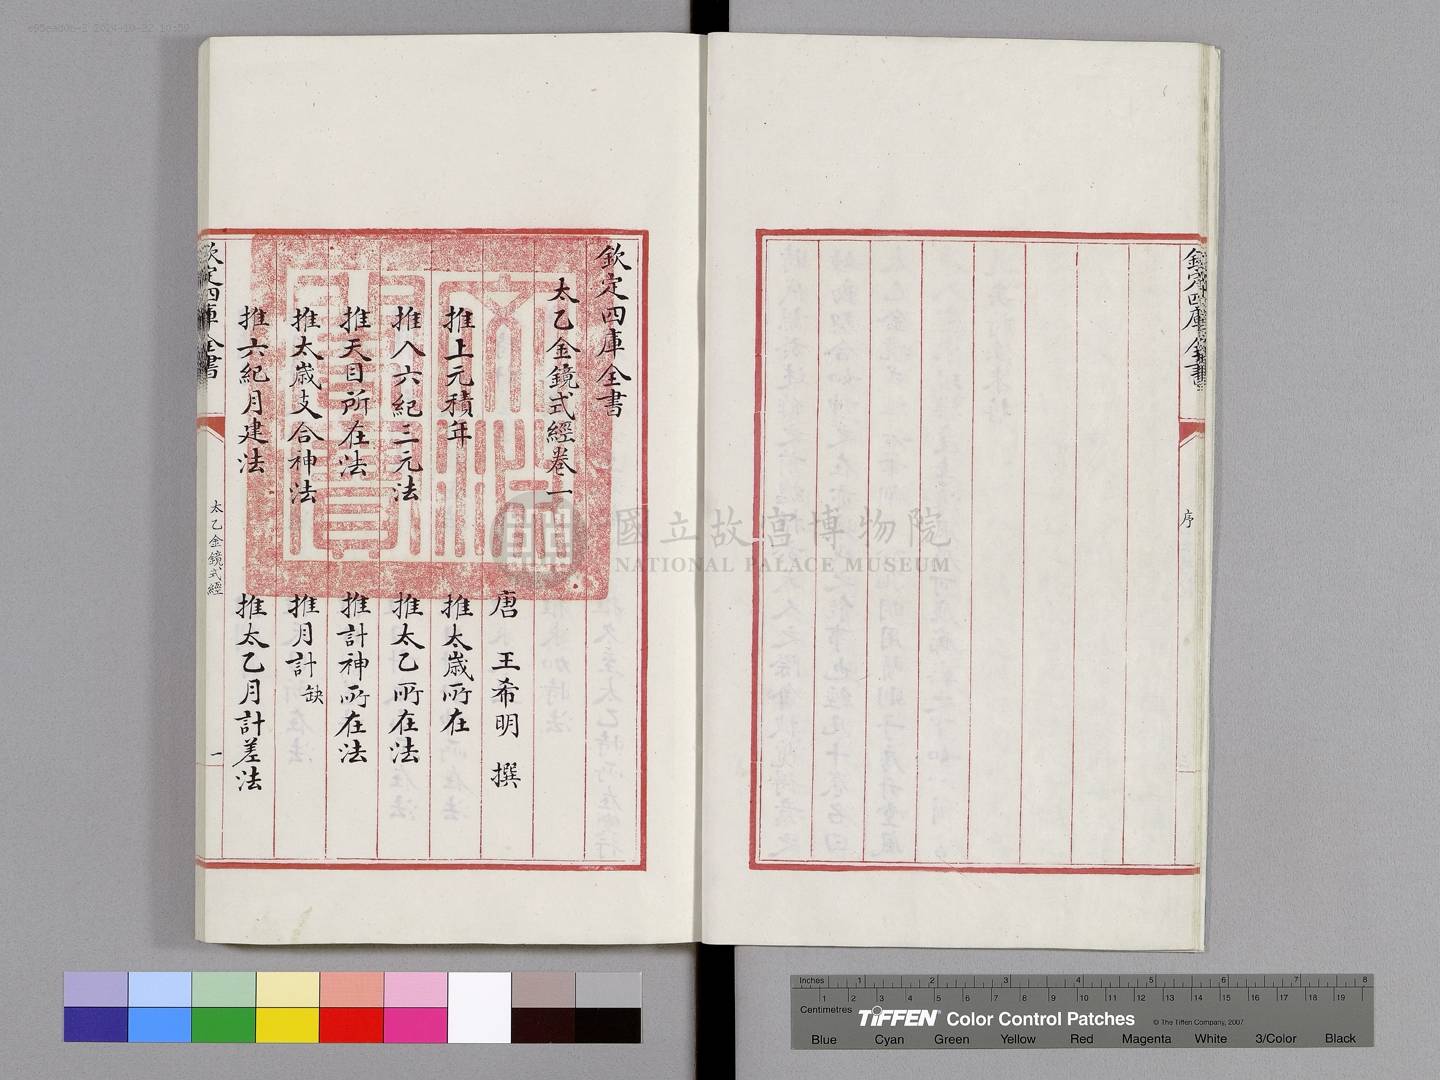 欽定四庫全書
序
欽定四庫全書
太乙金鏡式經卷一
唐 王希明 撰
推上元積年 推太歲所在
推入六紀三元法 推太乙所在法
推天目所在法 推計神所在法
推太歲支合神法 推月計缺
推六紀月建法 推太乙月計差法
欽定四庫全書
太乙金鏡式經
一
國立故宮博物院
NATIONAL PALACE MUSEUM
Inches 1 2 3 4 5 6 7 8
Centimetres 1 2 3 4 5 6 7 8 9 10 11 12 13 14 15 16 17 18 19
TIFFEN Color Control Patches © The Tiffen Company, 2007
Blue Cyan Green Yellow Red Magenta White 3/Color Black